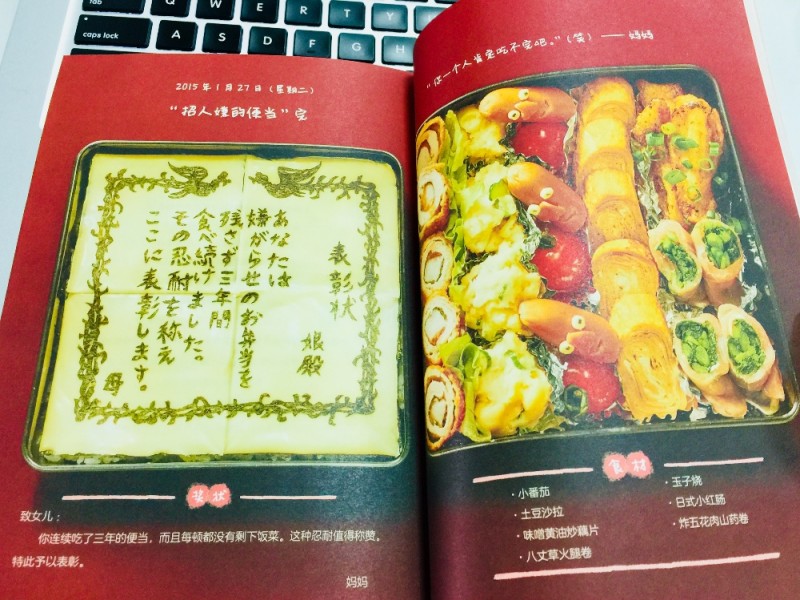 tab Q W E R T Y
caps lock A S D F G
2015年1月27日（星期二）
“招人嫌的便当”完
表彰状
娘殿
あなたは
嫌がらせのお弁当を
残さず三年間
食べ続けました。
その忍耐を称え
ここに表彰します。
母
奖状
致女儿：
你连续吃了三年的便当，而且每顿都没有剩下饭菜。这种忍耐值得称赞。
特此予以表彰。
妈妈
“你一个人肯定吃不完吧。”（笑） —— 妈妈
食材
·小番茄
·土豆沙拉
·味噌黄油炒藕片
·八丈草火腿卷
·玉子烧
·日式小红肠
·炸五花肉山药卷